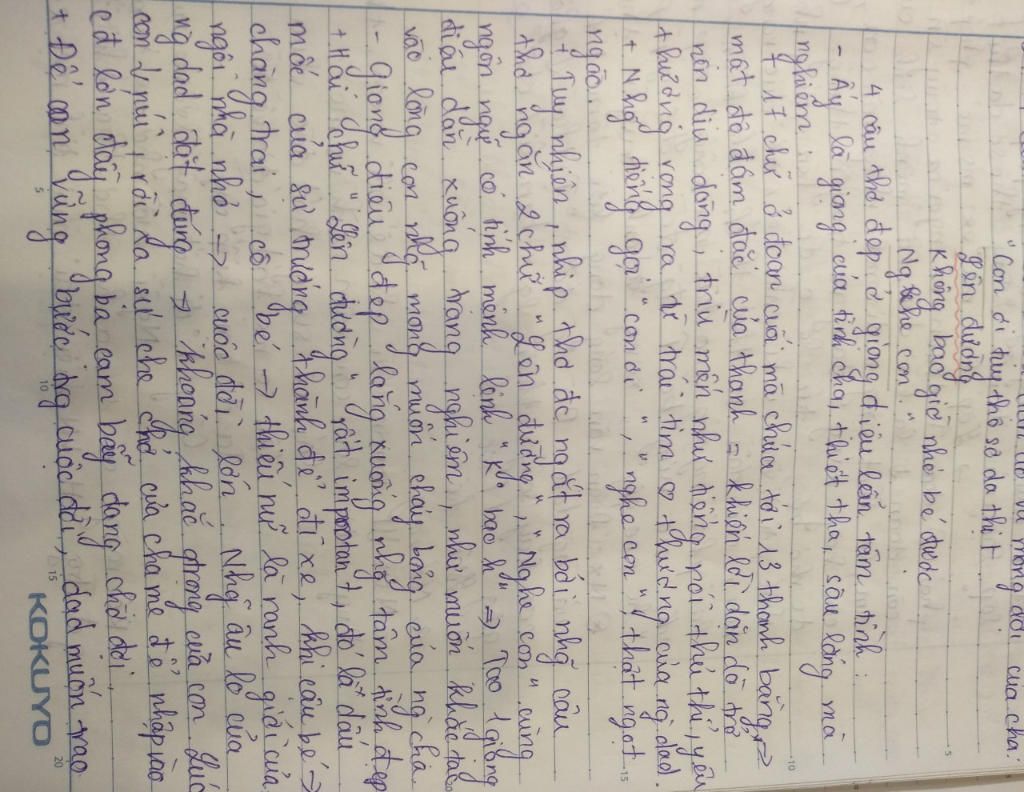 và mong đợi của cha:
"Con ơi tuy thô sơ da thịt
Lên đường
Không bao giờ nhỏ bé được
Nghe con."
4 câu thơ đẹp ở giọng điệu lẫn tâm tình:
- Ấy là giọng của tình cha, thiết tha, sâu lắng mà
nghiêm.
+ 17 chữ ở đoạn cuối mà chứa tới 13 thanh bằng →
mật độ đậm đặc của thanh = khiến lời dặn dò trở
nên dịu dàng, trìu mến như tiếng nói thủ thỉ, yêu
thương vọng ra từ trái tim ♡ thương của ng dad.
+ Nhg tiếng gọi "con ơi", "nghe con", thật ngọt
ngào.
+ Tuy nhiên, nhịp thơ đc ngắt ra bởi nhg câu
thơ ngắn 2 chữ "Lên đường", "Nghe con" cùng
ngôn ngữ có tính mệnh lệnh "kº bao h" ⇒ Tạo 1 giọng
điệu dằn xuống trang nghiêm, như muốn khắc
vào lòng con nhg mong muốn cháy bỏng của ng cha.
- Giọng điệu đẹp lắng xuống nhg tâm tình đẹp
+ Hai chữ "Lên đường" rất impotant, đó là dấu
mốc của sự trưởng thành để đi xe, khi cậu bé →
chàng trai, cô bé → thiếu nữ là ranh giới của
ngôi nhà nhỏ → cuộc đời lớn. Nhg âu lo của
ng dad đặt đúng → khoảng khắc đóng cửa con
con ↓ núi, rời xa sự che chở của cha mẹ để nhập vào
cđ lớn đầy phong ba cạm bẫy đang chờ đợi.
+ Để con vững bước trg cuộc đời, dad muốn trao
KOKUYO
5
10
15
20
5
10
15